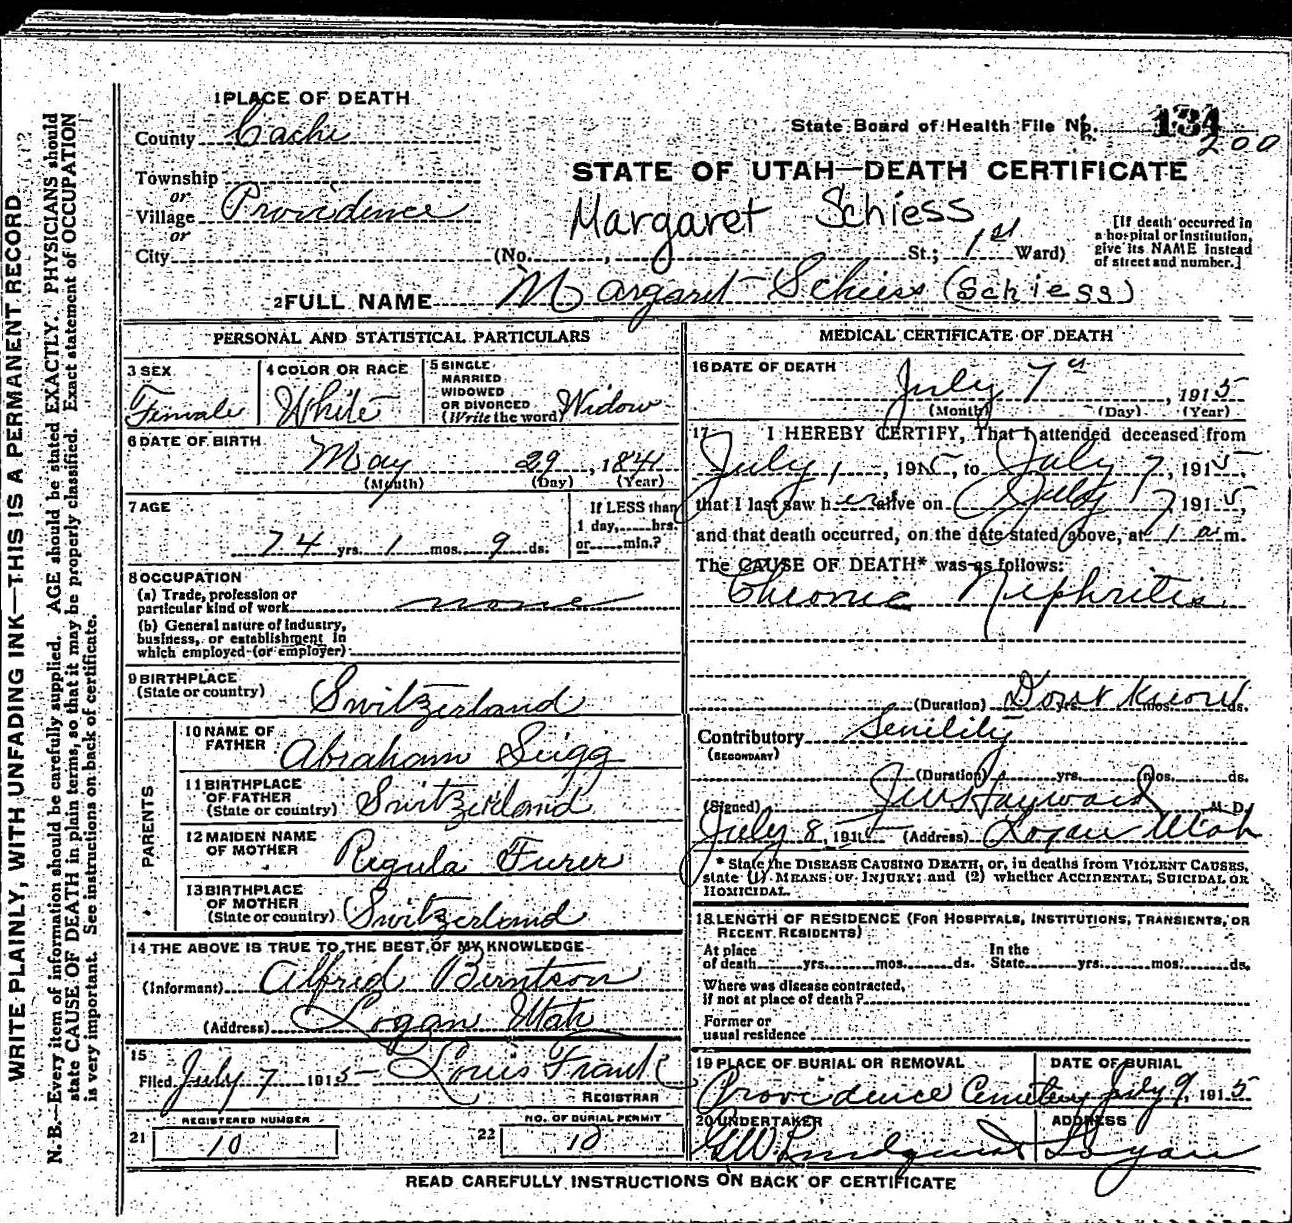 WRITE PLAINLY, WITH UNFADING INK—THIS IS A PERMANENT RECORD
N. B.—Every item of information should be carefully supplied. AGE should be stated EXACTLY. PHYSICIANS should
state CAUSE OF DEATH in plain terms, so that it may be properly classified. Exact statement of OCCUPATION
is very important. See instructions on back of certificate.
1 PLACE OF DEATH
County Cache
State Board of Health File No. 134
200
Township
or
Village Providence
or
City
STATE OF UTAH—DEATH CERTIFICATE
Margaret Schiess
(No. , St.; 1st Ward)
[If death occurred in
a hospital or institution,
give its NAME instead
of street and number.]
2 FULL NAME Margaret Schiess (Schiess)
PERSONAL AND STATISTICAL PARTICULARS
3 SEX
Female
4 COLOR OR RACE
White
5 SINGLE,
MARRIED
WIDOWED
OR DIVORCED
(Write the word) Widow
6 DATE OF BIRTH
May 29, 1841
(Month) (Day) (Year)
7 AGE
74 yrs. 1 mos. 9 ds.
If LESS than
1 day, hrs.
or min.?
8 OCCUPATION
(a) Trade, profession or
particular kind of work none
(b) General nature of industry,
business, or establishment in
which employed (or employer)
9 BIRTHPLACE
(State or country) Switzerland
PARENTS
10 NAME OF
FATHER Abraham Sugg
11 BIRTHPLACE
OF FATHER
(State or country) Switzerland
12 MAIDEN NAME
OF MOTHER Regula Furer
13 BIRTHPLACE
OF MOTHER
(State or country) Switzerland
14 THE ABOVE IS TRUE TO THE BEST OF MY KNOWLEDGE
(Informant) Alfred Berntson
(Address) Logan Utah
15
Filed July 7 1915 Louis Frank
REGISTRAR
REGISTERED NUMBER
21 10
NO. OF BURIAL PERMIT
22 10
MEDICAL CERTIFICATE OF DEATH
16 DATE OF DEATH
July 7, 1915
(Month) (Day) (Year)
17 I HEREBY CERTIFY, That I attended deceased from
July 1, 1915, to July 7, 1915,
that I last saw her alive on July 7 1915,
and that death occurred, on the date stated above, at 1 a m.
The CAUSE OF DEATH* was as follows:
Chronic Nephritis
(Duration) Dont Know yrs. mos. ds.
Contributory Senility
(SECONDARY)
(Duration) yrs. mos. ds.
(Signed) Hayward M. D.
July 8, 1915 (Address) Logan Utah
* State the DISEASE CAUSING DEATH, or, in deaths from VIOLENT CAUSES,
state (1) MEANS OF INJURY; and (2) whether ACCIDENTAL, SUICIDAL OR
HOMICIDAL.
18 LENGTH OF RESIDENCE (FOR HOSPITALS, INSTITUTIONS, TRANSIENTS, OR
RECENT RESIDENTS)
At place
of death yrs. mos. ds.
In the
State yrs. mos. ds.
Where was disease contracted,
if not at place of death?
Former or
usual residence
19 PLACE OF BURIAL OR REMOVAL
Providence Cemetery
DATE OF BURIAL
July 9, 1915
20 UNDERTAKER
G W Lindquist
ADDRESS
Logan
READ CAREFULLY INSTRUCTIONS ON BACK OF CERTIFICATE